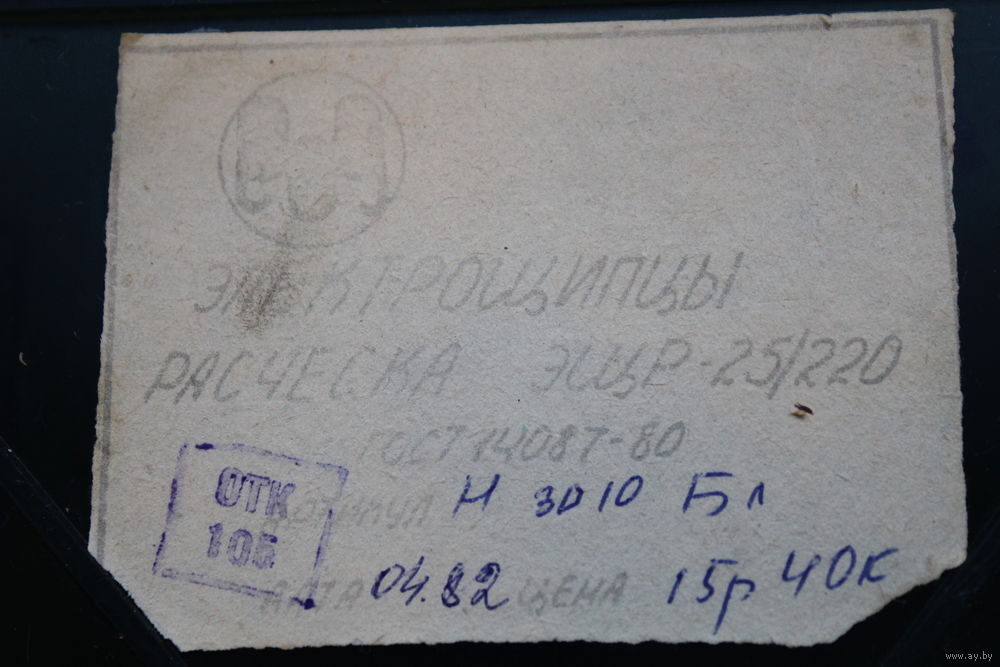 ЭЛЕКТРОЩИПЦЫ
РАСЧЕСКА ЭЩР-25/220
ГОСТ 14087-80
ОТК
105
Н 3010 Бл
ДАТА 04.82 ЦЕНА 15р 40к
www.ay.by